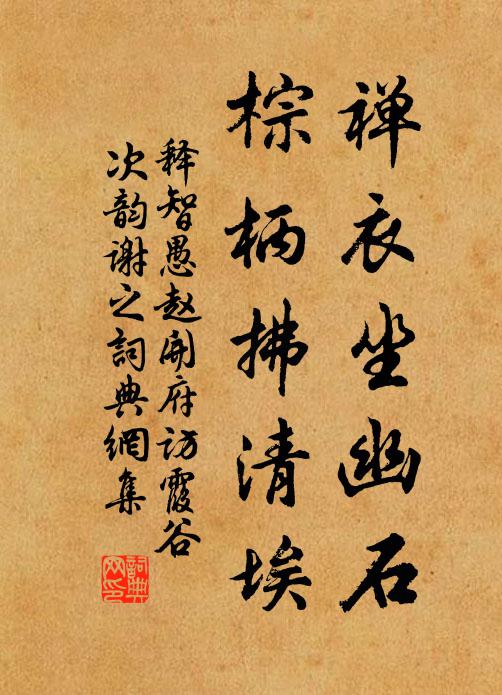 禅衣坐幽石
棕柄拂清埃
释智愚赵開府访霞谷
次韵谢之詞典網集
詞典网印